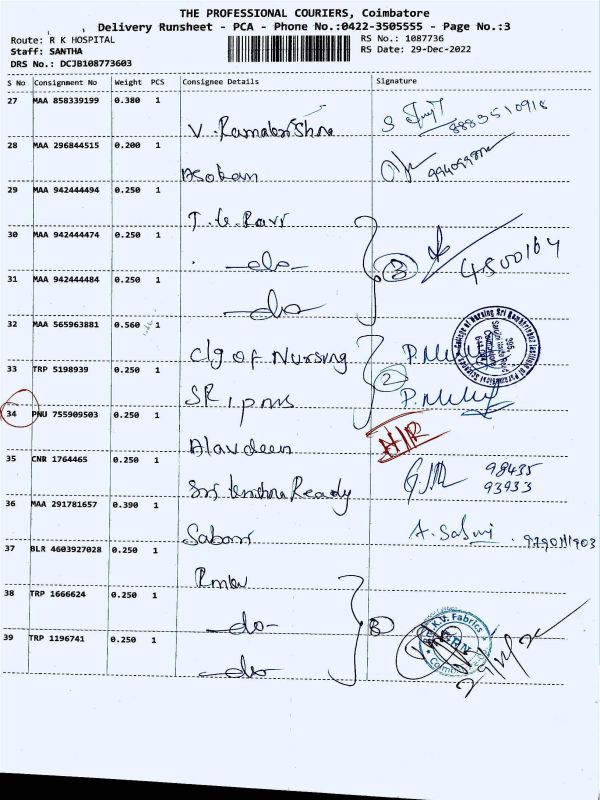 THE PROFESSIONAL COURIERS, Coimbatore
Delivery Runsheet - PCA - Phone No.:0422-3505555 - Page No.:3
Route: R K HOSPITAL
RS No.: 1087736
Staff: SANTHA
RS Date: 29-Dec-2022
DRS No.: DCJB108773603
S No Consignment No Weight PCS Consignee Details Signature
27 MAA 858339199 0.380 1
V. Ramakrishna
S 8883510918
28 MAA 296844515 0.200 1
Asokan
29 MAA 942444494 0.250 1
T.G. Ravi
30 MAA 942444474 0.250 1
-do-
3
4500164
31 MAA 942444484 0.250 1
-do-
32 MAA 565963881 0.560 1
Clg of Nursing
33 TRP 5198939 0.250 1
2
SRIPMS
34 PNU 755909503 0.250 1
N/R
Alavdeen
35 CNR 1764465 0.250 1
98435
93933
Ready
36 MAA 291781657 0.390 1
Sabari
A. Sabari
37 BLR 4603927028 0.250 1
38 TRP 1666624 0.250 1
-do-
3
K.V. Fabrics
39 TRP 1196741 0.250 1
-do-
29/12/22